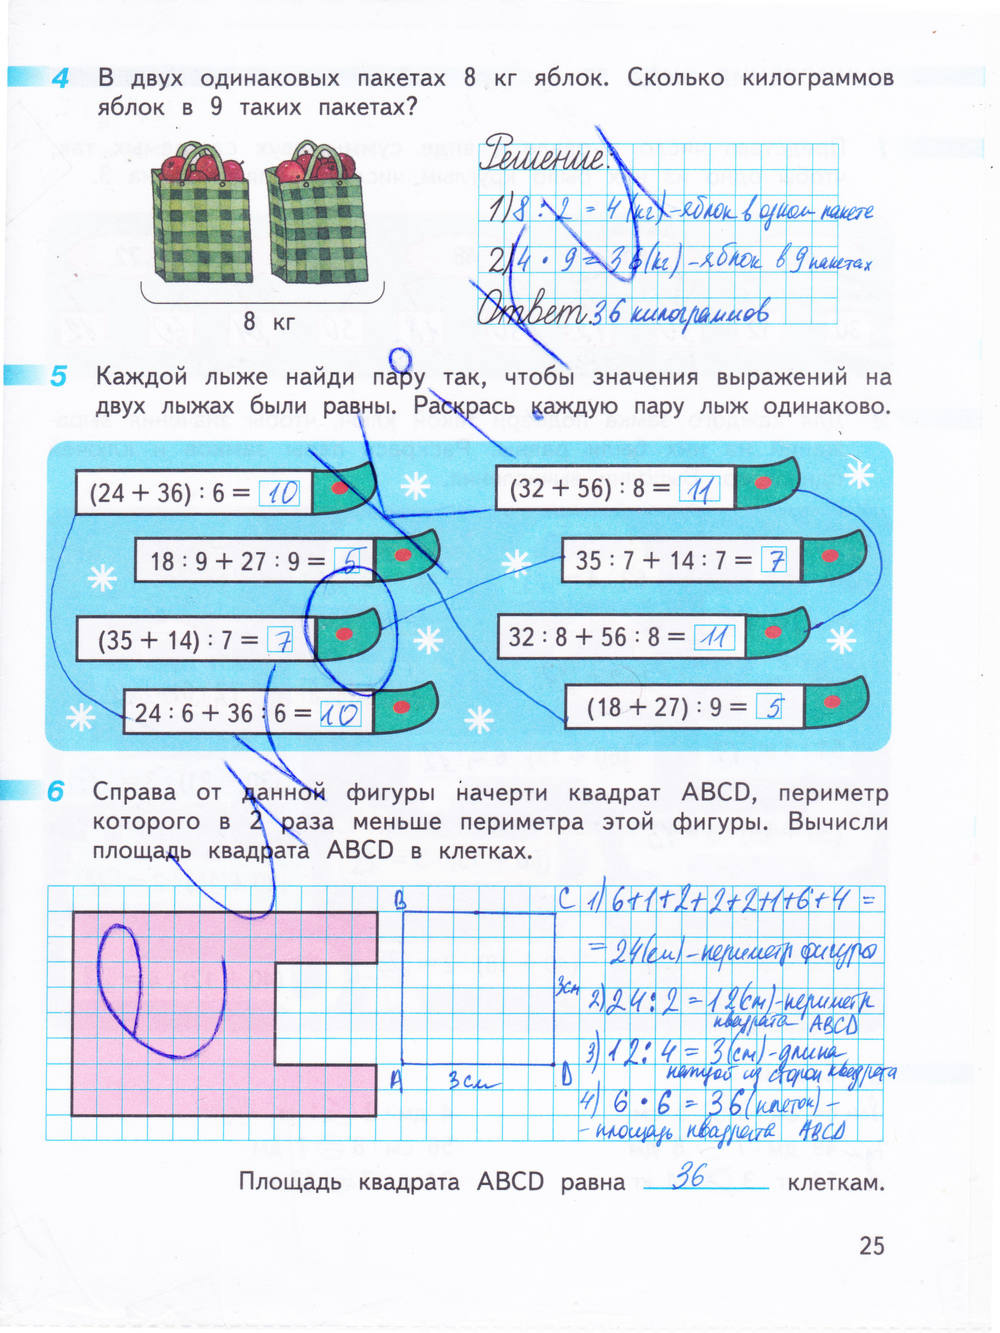 4 В двух одинаковых пакетах 8 кг яблок. Сколько килограммов
яблок в 9 таких пакетах?
Решение:
1) 8 : 2 = 4 (кг) - яблок в одном пакете
2) 4 · 9 = 36 (кг) - яблок в 9 пакетах
Ответ. 36 килограммов
8 кг
5 Каждой лыже найди пару так, чтобы значения выражений на
двух лыжах были равны. Раскрась каждую пару лыж одинаково.
(24 + 36) : 6 = 10
(32 + 56) : 8 = 11
18 : 9 + 27 : 9 = 5
35 : 7 + 14 : 7 = 7
(35 + 14) : 7 = 7
32 : 8 + 56 : 8 = 11
24 : 6 + 36 : 6 = 10
(18 + 27) : 9 = 5
6 Справа от данной фигуры начерти квадрат ABCD, периметр
которого в 2 раза меньше периметра этой фигуры. Вычисли
площадь квадрата ABCD в клетках.
B
C
3см
A
3см
D
1) 6+1+2+2+2+1+6+4 =
= 24(см) - периметр фигуры
2) 24 : 2 = 12(см) - периметр
квадрата ABCD
3) 12 : 4 = 3(см) - длина
каждой из сторон квадрата
4) 6 · 6 = 36 (клеток) -
- площадь квадрата ABCD
Площадь квадрата ABCD равна 36 клеткам.
25